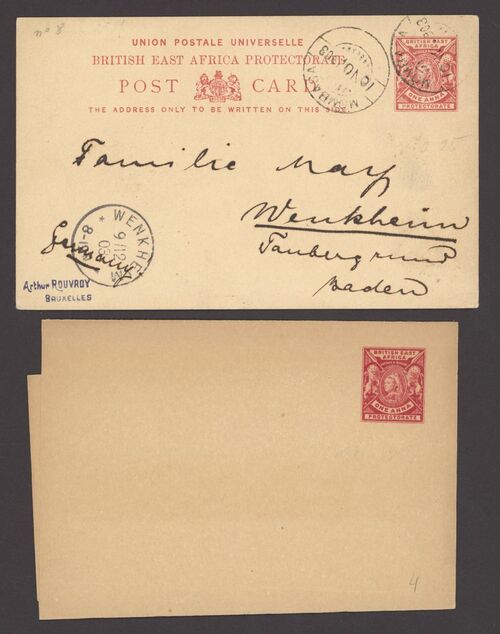 no 8
UNION POSTALE UNIVERSELLE
BRITISH EAST AFRICA PROTECTORATE
POST CARD
THE ADDRESS ONLY TO BE WRITTEN ON THIS SIDE
MOMBASA
BRITISH EAST
AFRICA
ONE ANNA
PROTECTORATE
Familie May
Wenkheim
Taubergrund
Baden
Germany
WENKHEIM
9/12
03
8-9
Arthur ROUVROY
BRUXELLES
BRITISH EAST
AFRICA
ONE ANNA
PROTECTORATE
4